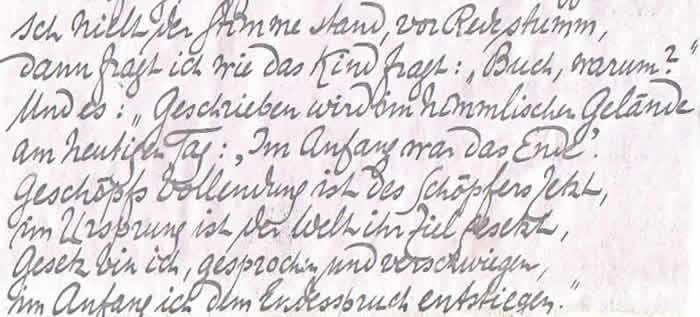 Ich hielt der Stimme stand, vor Rede stumm,
dann fragt ich wie das Kind fragt: „Buch, warum?“
Und es: „Geschrieben wird im himmlischen Gelände
am heutigen Tag: ‚Im Anfang war das Ende‘.
Geschöpfs Vollendung ist des Schöpfers Jetzt,
im Ursprung ist der Welt ihr Ziel gesetzt,
Gesetz bin ich, gesprochen und verschwiegen,
im Anfang ich dem Endesspruch entstiegen.“